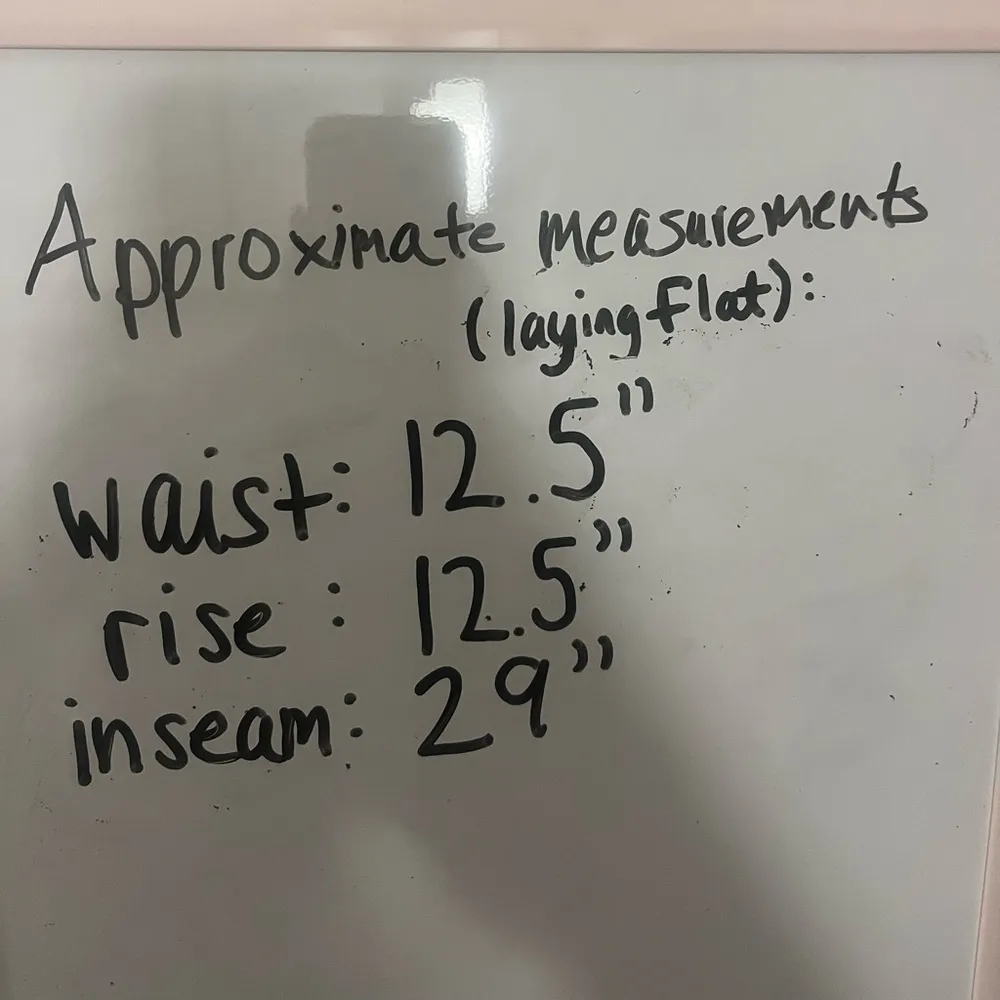 Approximate measurements
(laying flat):
waist: 12.5"
rise: 12.5"
inseam: 29"